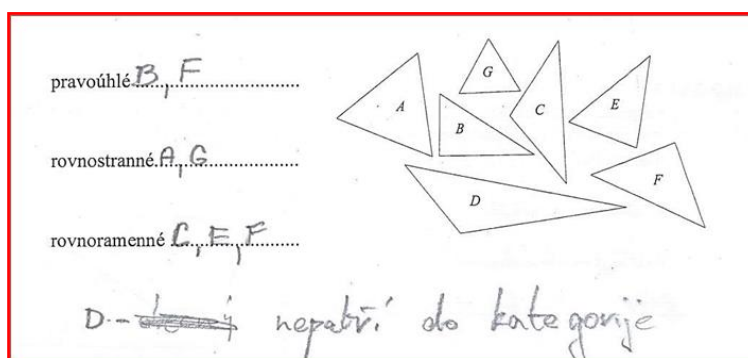 pravoúhlé B, F
rovnostranné A, G
rovnoramenné C, E, F
A
B
C
D
E
F
G
D - nepatří do kategorije